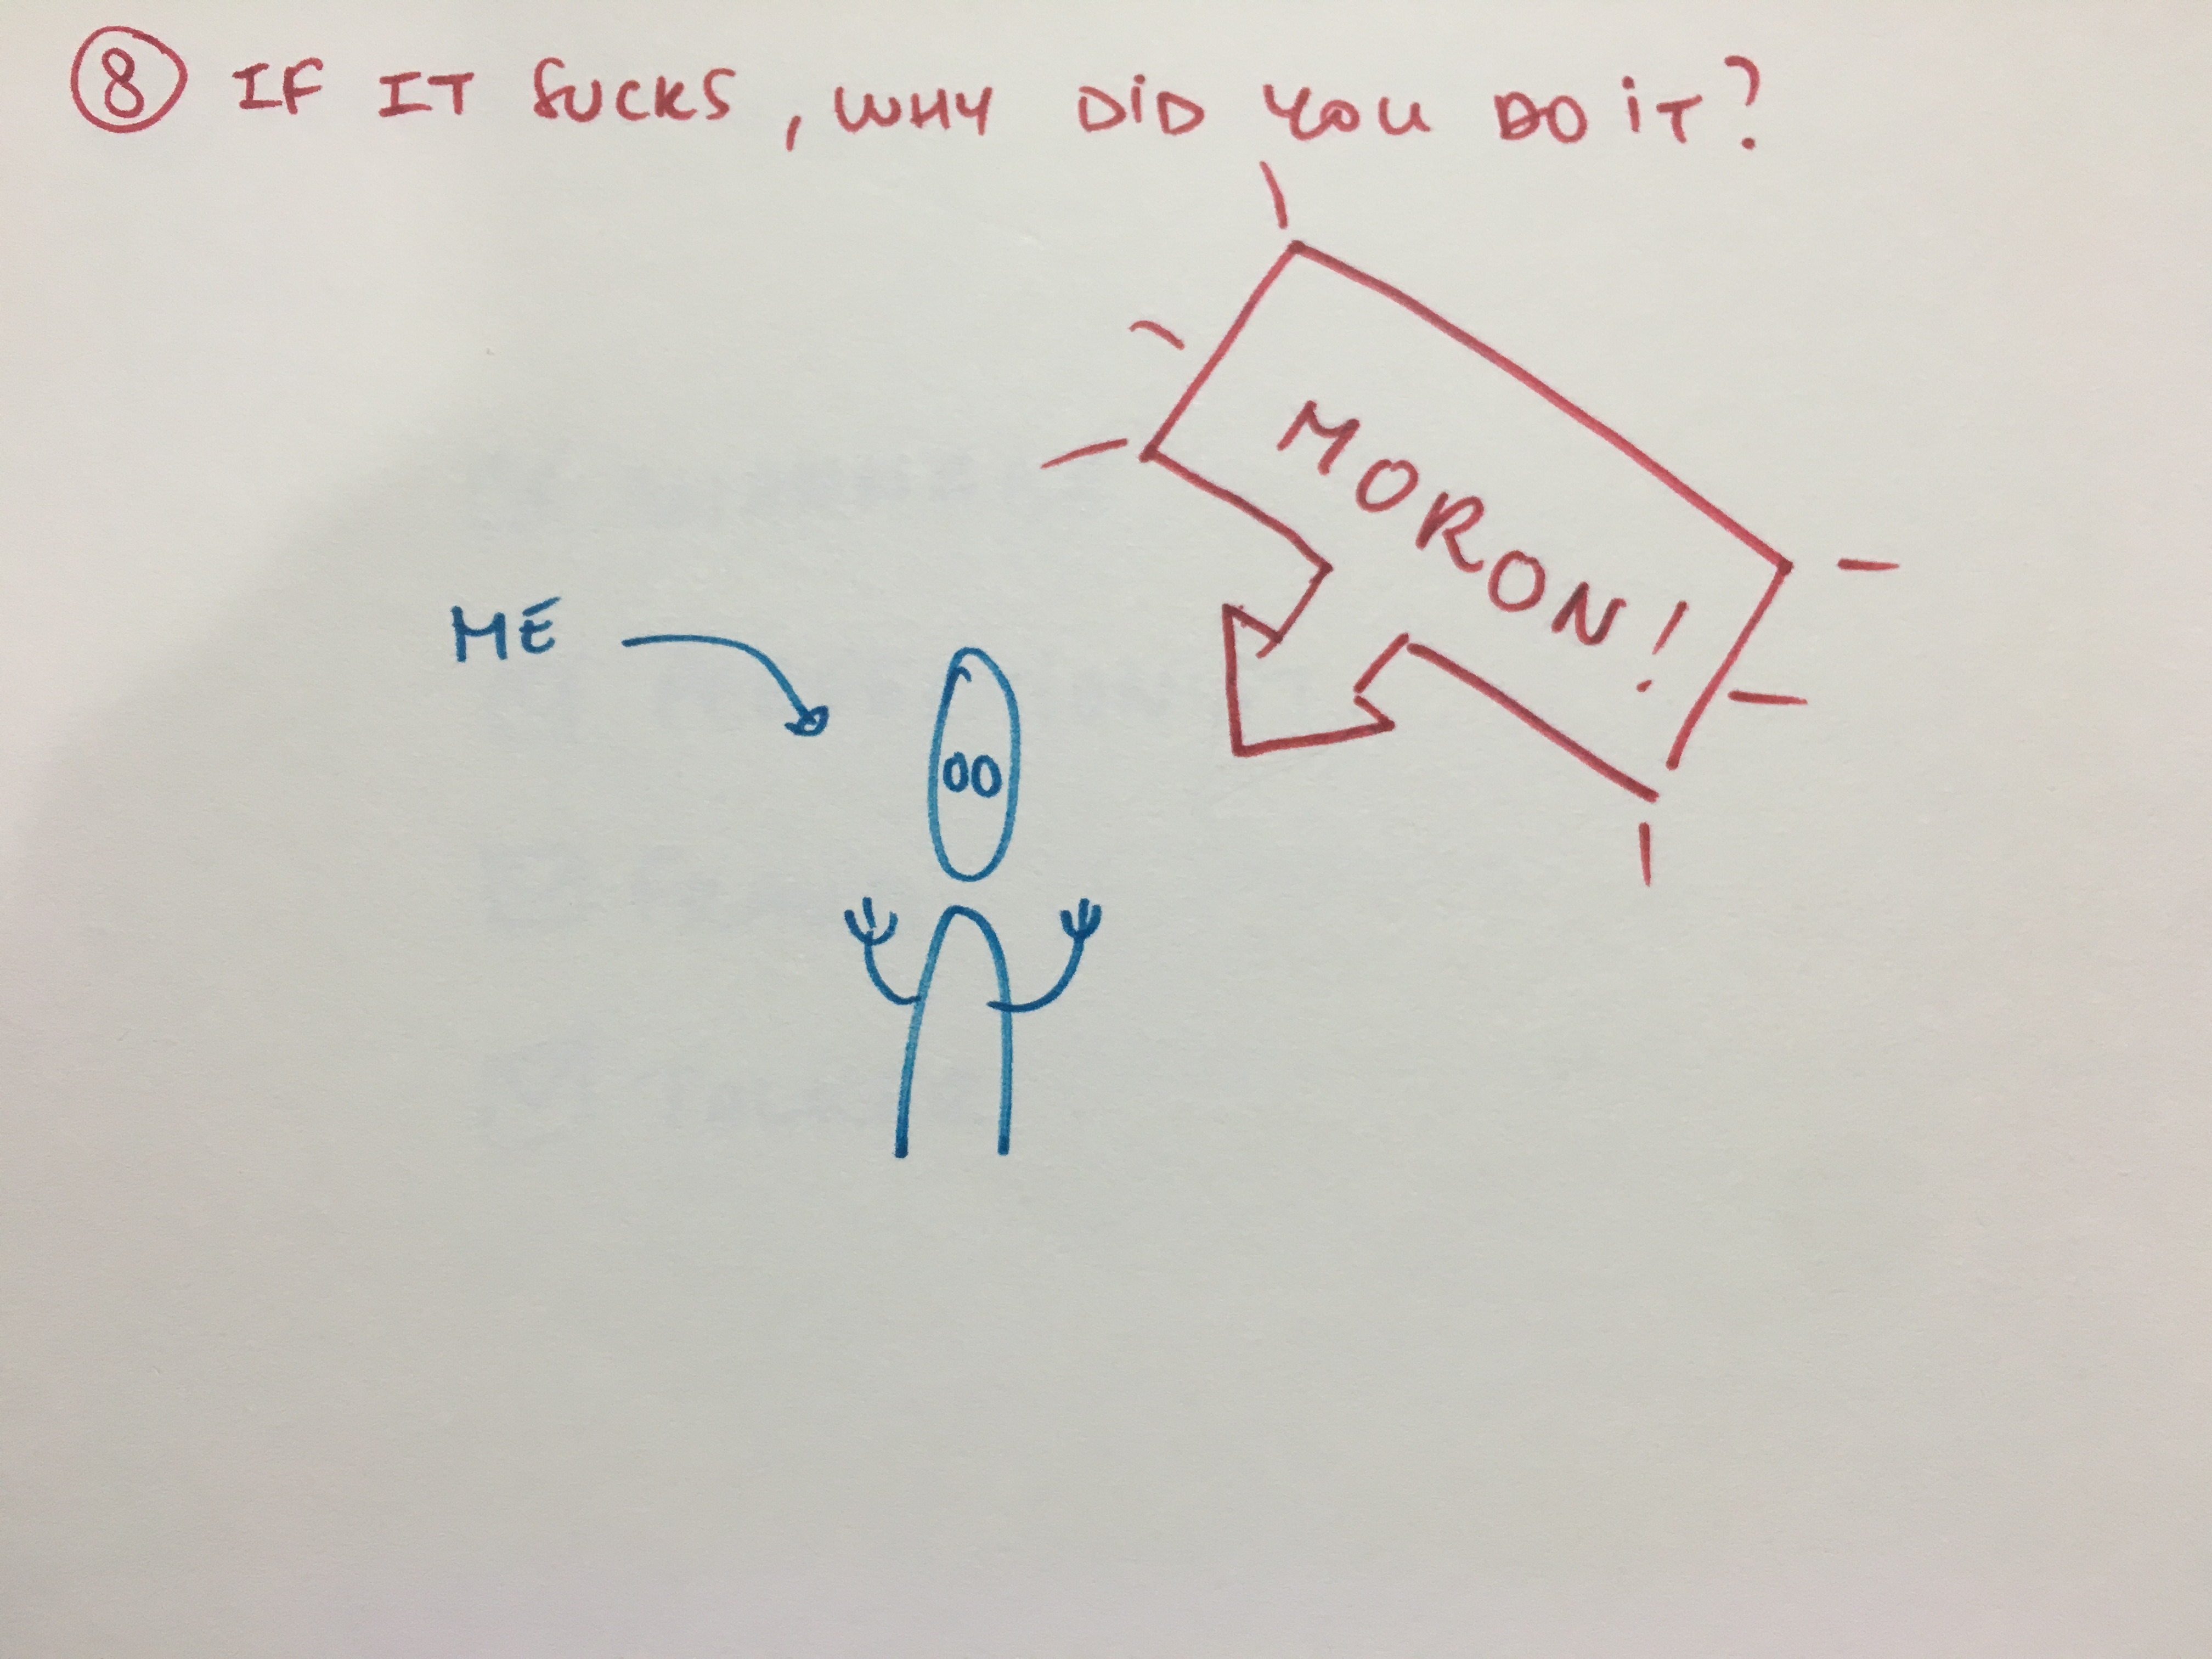 8 IF IT SUCKS, WHY DID YOU DO IT?
MORON!
ME